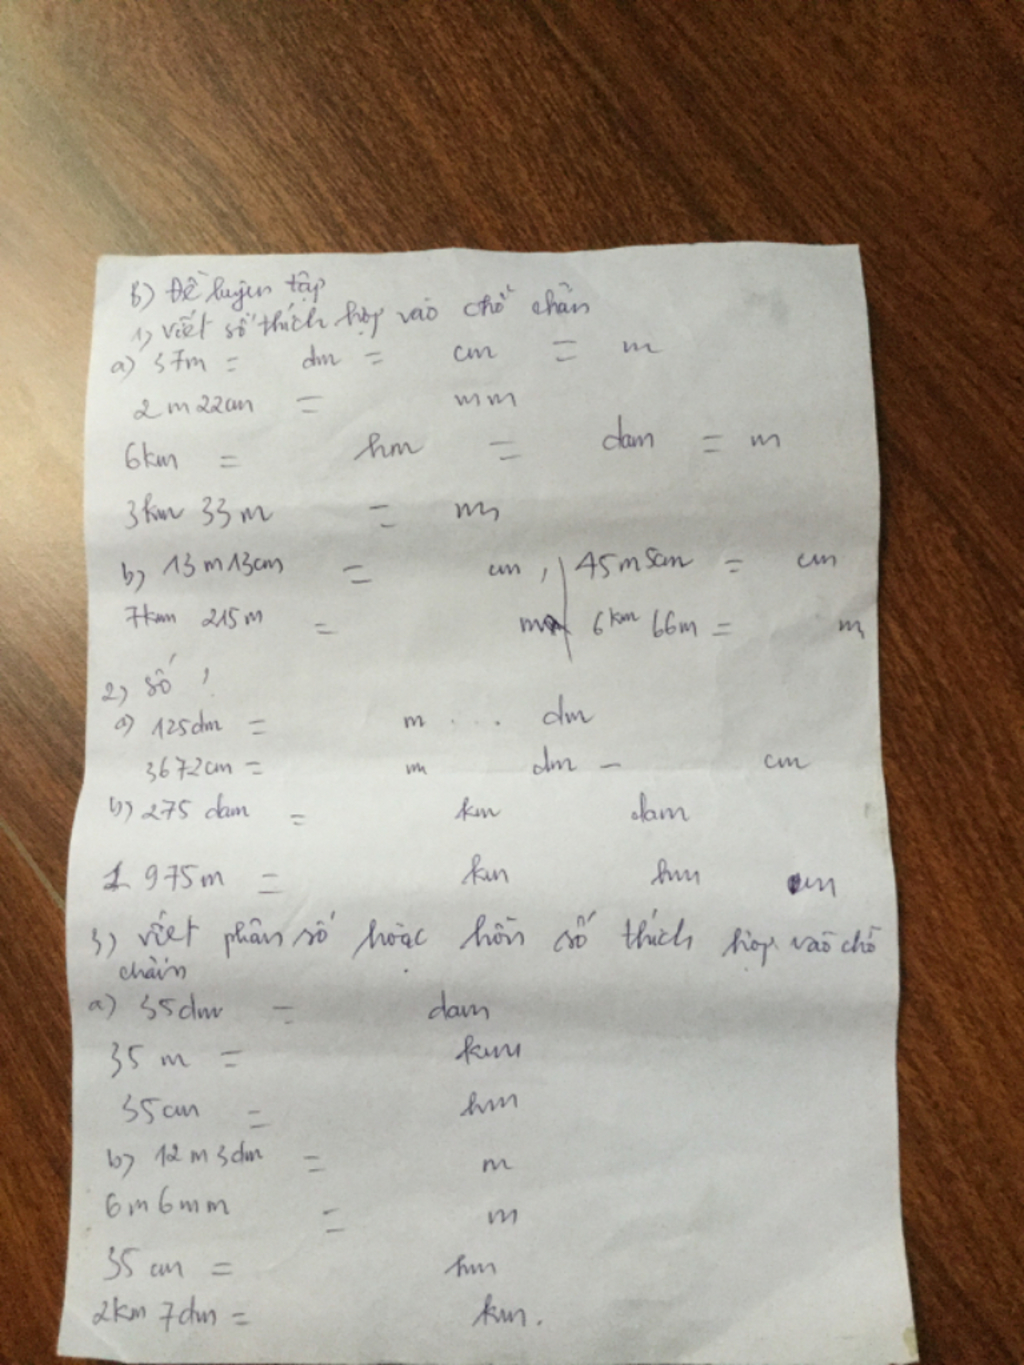 B) Đề luyện tập
1) viết số thích hợp vào chỗ chấm
a) 37m = dm = cm = m
2m22cm = mm
6km = hm = dam = m
3km 33m = m
b) 13m13cm = cm, 45m5cm = cm
7km 215m = m 6km 66m = m
2) số !
a) 125dm = m ... dm
3672cm = m dm - cm
b) 275 dam = km dam
1 975m = km hm m
3) viết phân số hoặc hỗn số thích hợp vào chỗ
chấm
a) 35dm = dam
35 m = km
35cm = hm
b) 12m3dm = m
6m6mm = m
35 cm = hm
2km 7dm = km.